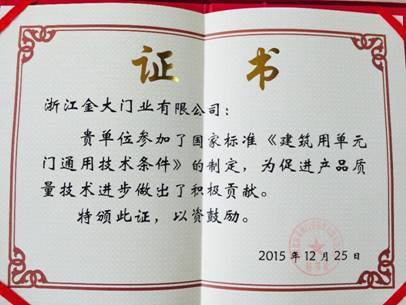 证书
浙江金大门业有限公司：
贵单位参加了国家标准《建筑用单元
门通用技术条件》的制定，为促进产品质
量技术进步做出了积极贡献。
特颁此证，以资鼓励。
2015年12月25日